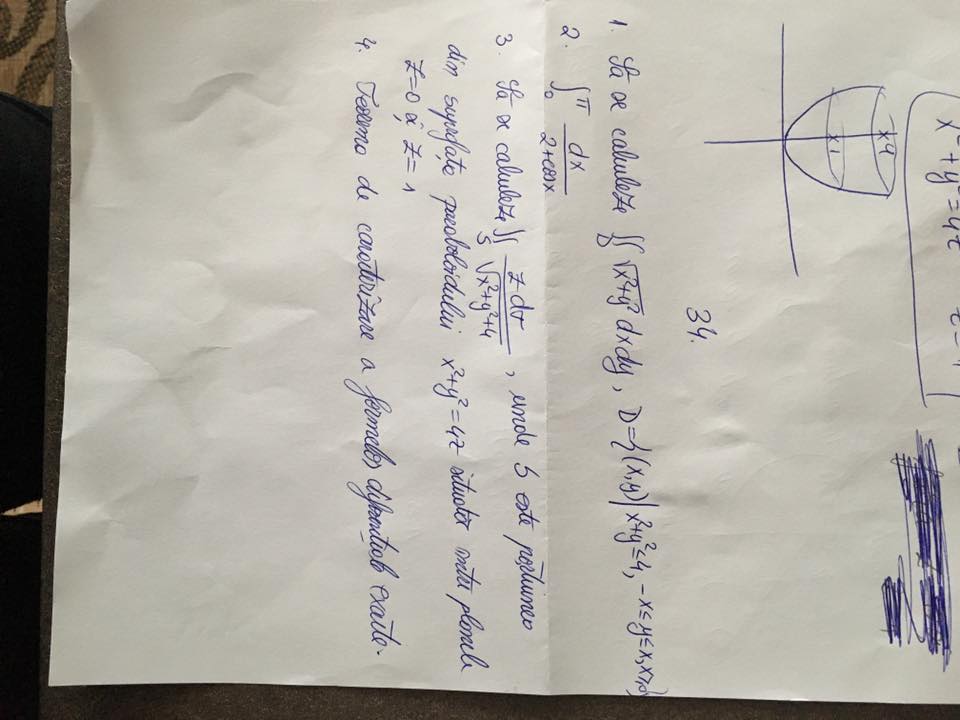 x²+y²=4z z=1
x4
x1
34.
1. Să se calculeze ∬_D √(x²+y²) dxdy, D={(x,y)|x²+y²≤4, -x≤y≤x, x≥0}
2. ∫₀^π dx/(2+cosx)
3. Să se calculeze ∬_S z dσ/√(x²+y²+4), unde S este porțiunea
din suprafața paraboloidului x²+y²=4z situată între planele
z=0 și z=1
4. Teorema de caracterizare a formelor diferențiale exacte.